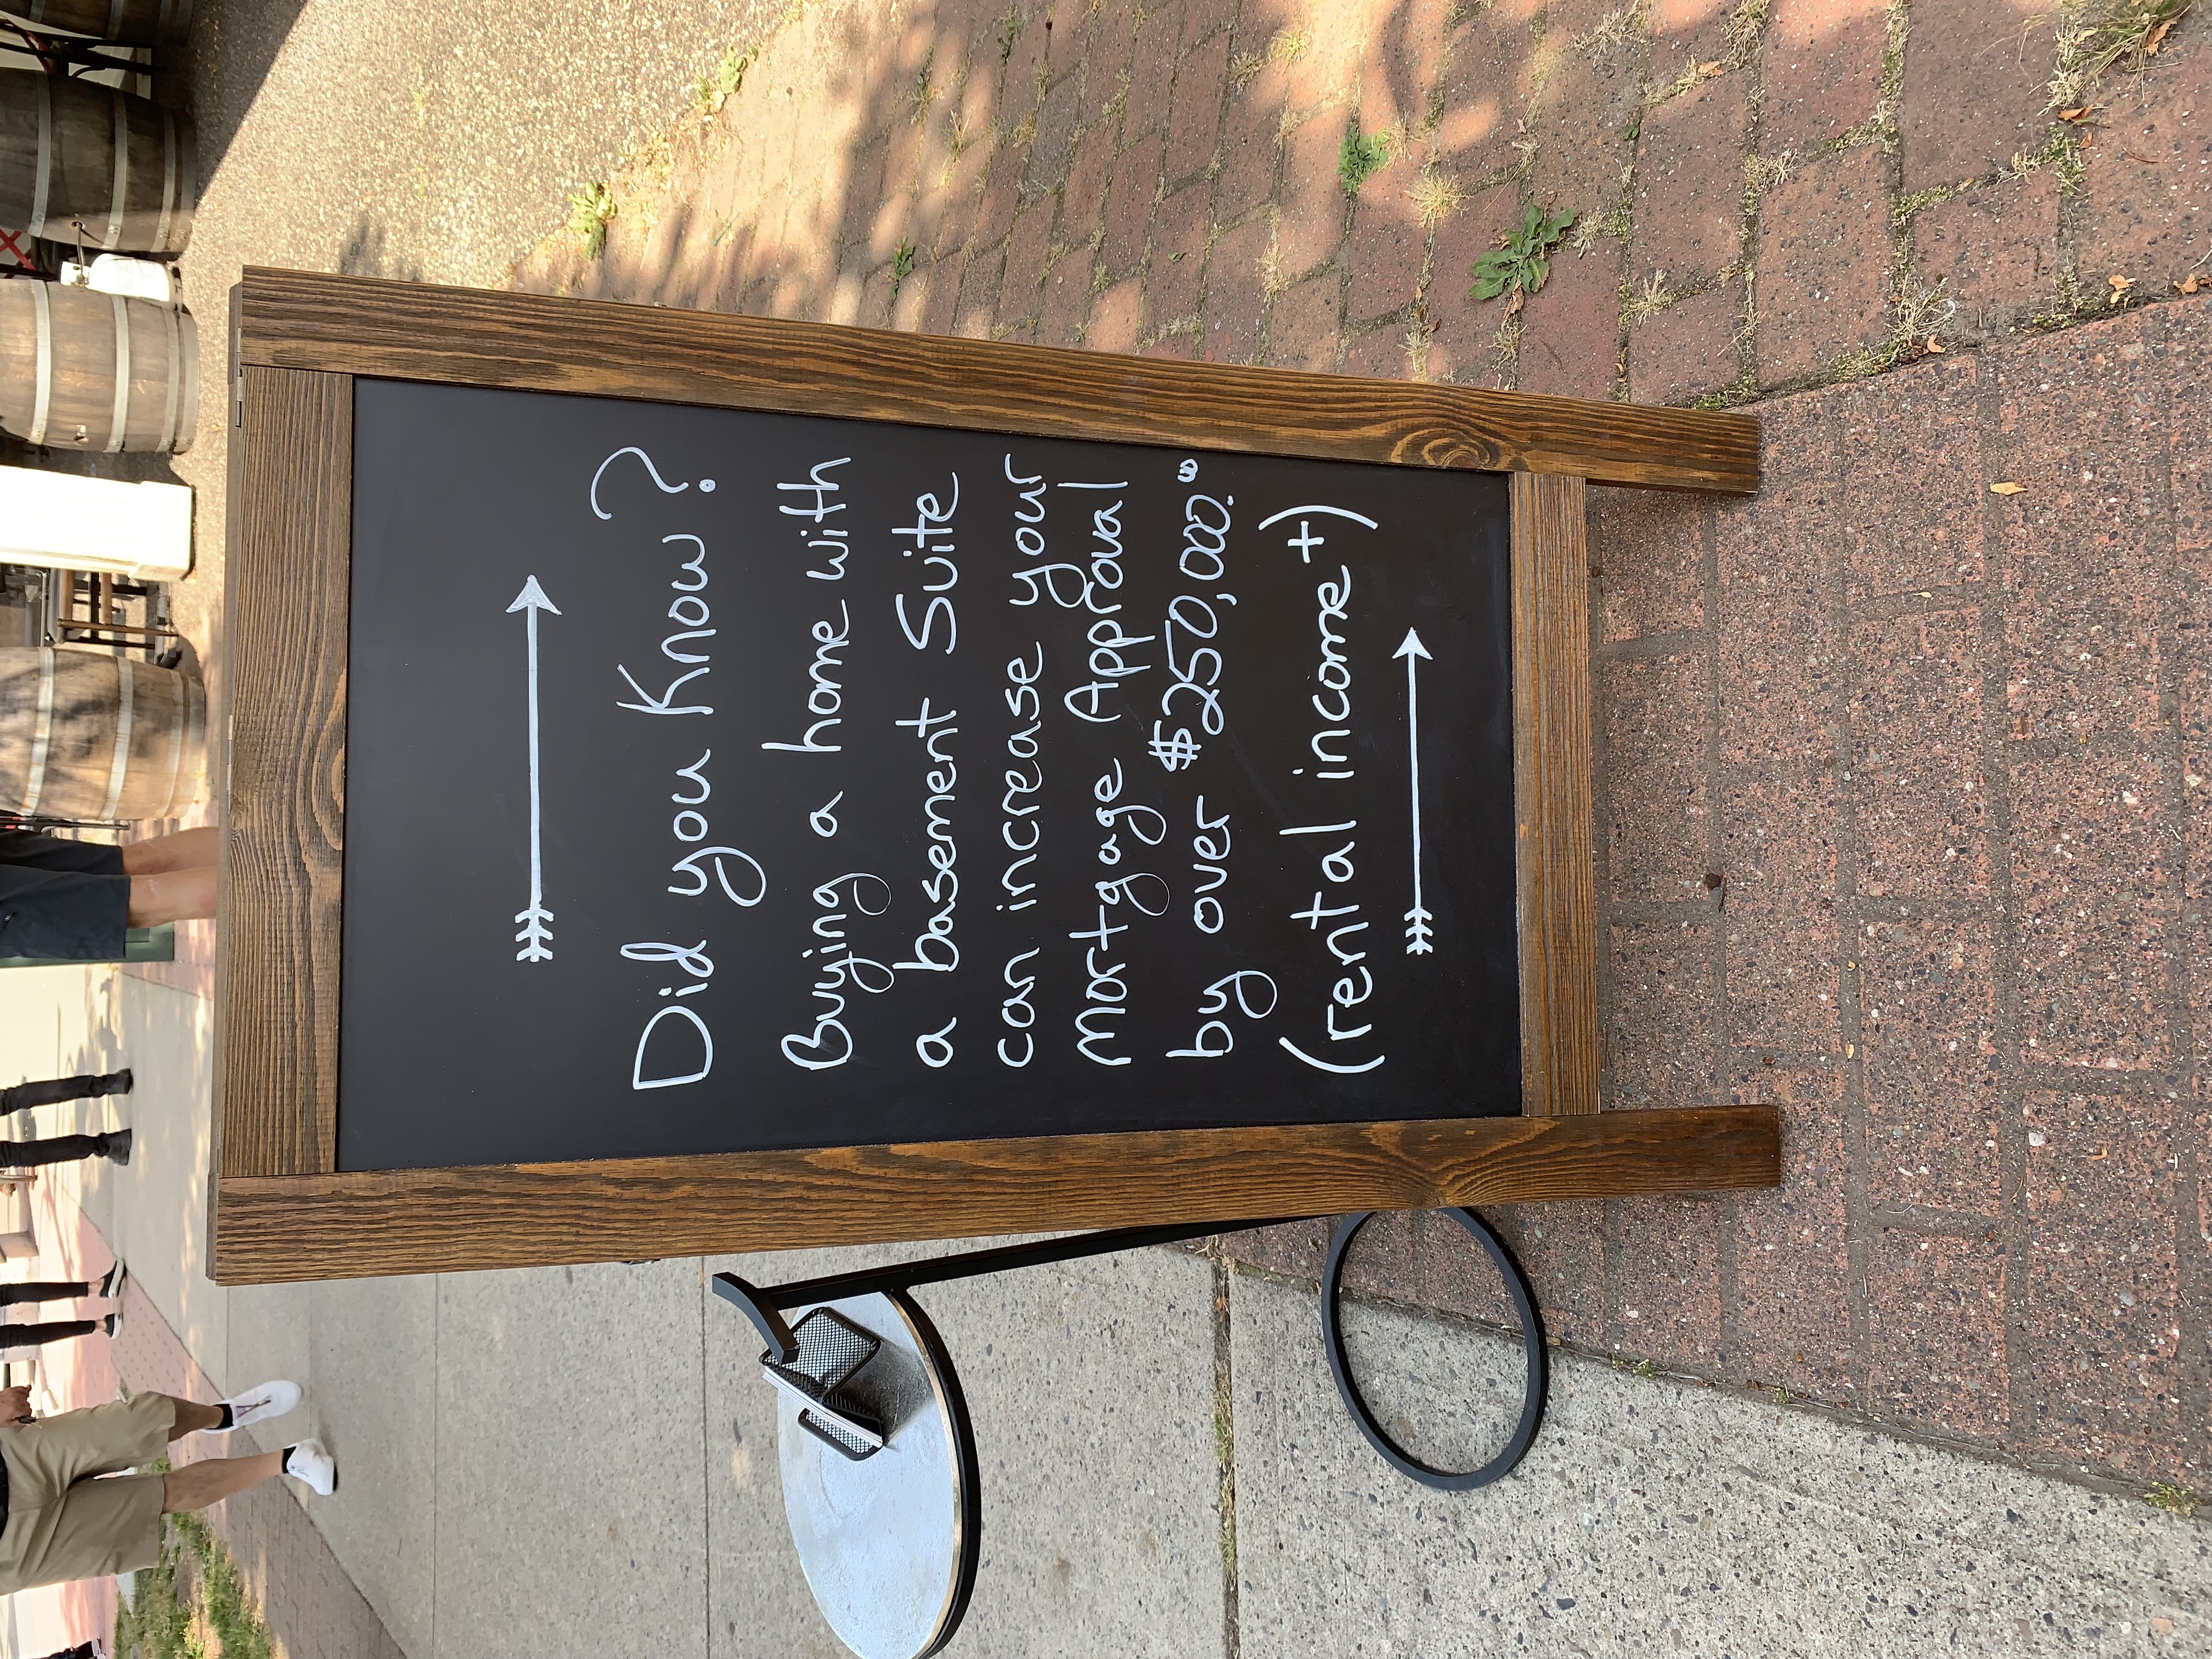 Did you Know?
Buying a home with
a basement Suite
can increase your
mortgage Approval
by over $250,000.⁰⁰
(rental income +)